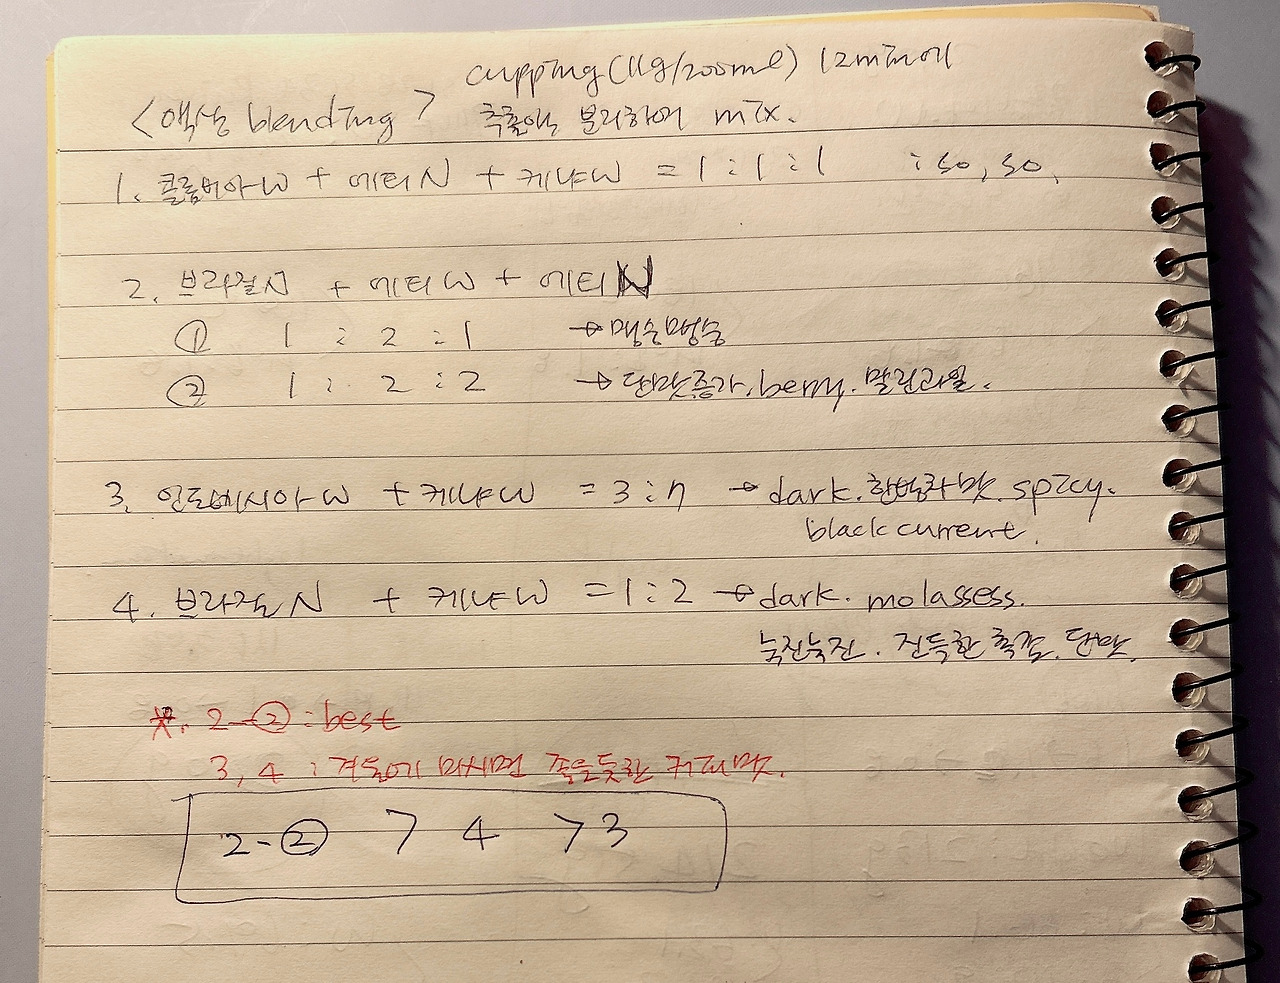 cupping (11g/200ml) 12min에
<액상 blending> 추출액을 분리하여 mix.
1. 콜롬비아W + 에티N + 케냐W = 1 : 1 : 1 : so, so,
2. 브라질N + 에티W + 에티N
① 1 : 2 : 1 → 맹숭맹숭
② 1 : 2 : 2 → 단맛증가. berry. 말린과일.
3. 인도네시아W + 케냐W = 3 : 7 → dark. 한방차 맛. spicy.
black current.
4. 브라질N + 케냐W = 1 : 2 → dark. molassess.
눅진눅진. 진득한 촉감. 단맛.
*. 2-② : best
3, 4 : 겨울에 마시면 좋을듯한 커피맛.
2-② > 4 > 3